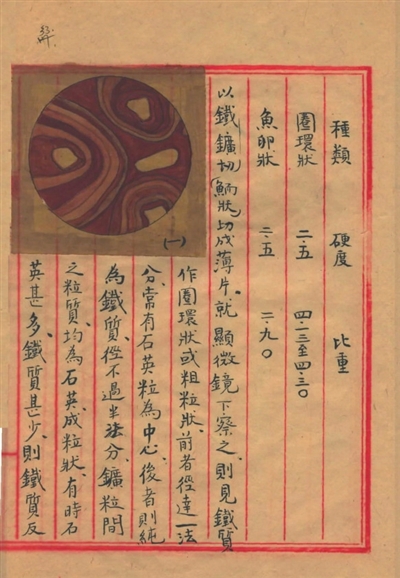 種類 硬度 比重
圈環狀 二·五 四·二三至四·三〇
魚卵狀 二·五 二·九〇
以鐵鑛(鮞狀)切成薄片、就顯微鏡下察之、則見鐵質
作圈環狀或粗粒狀、前者徑達一法
分、常有石英粒為中心、後者則純
為鐵質、徑不過半法分、鑛粒間
之粒質、均為石英成粒狀、有時石
英甚多、鐵質甚少、則鐵質反
(一)